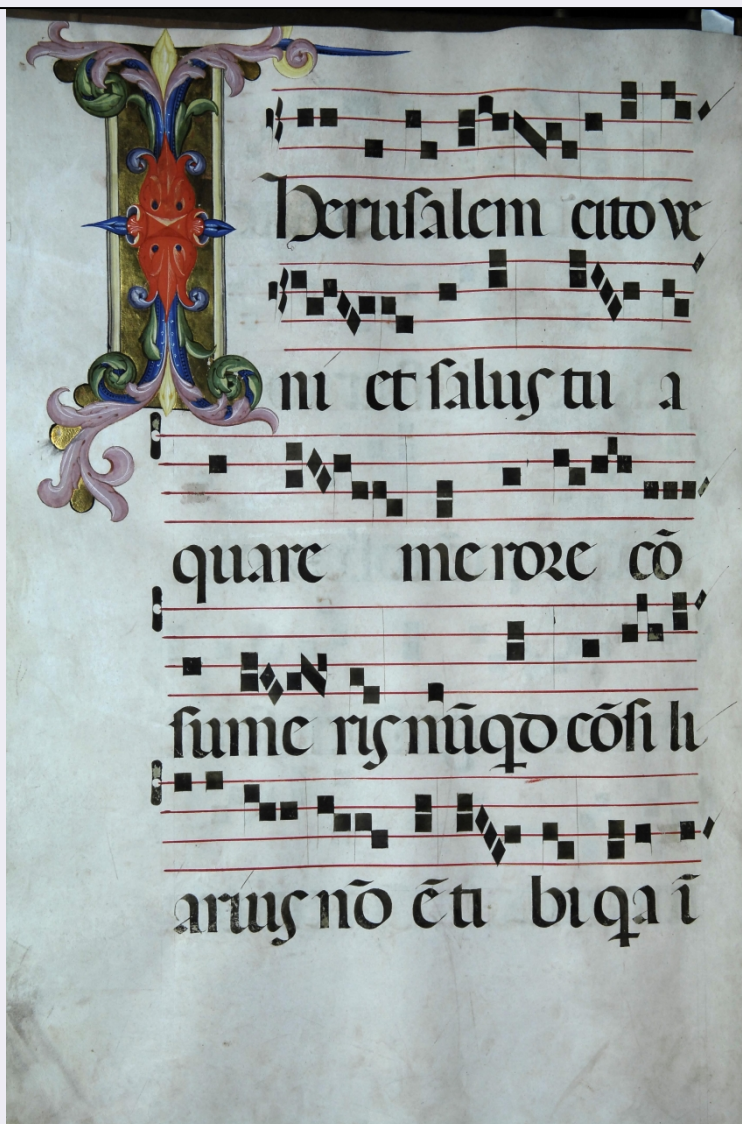 Iherusalem cito ve
ni et salus tu a
quare merore cō
sume ris nūqd cōsi li
arius nō ē ti bi qa ī